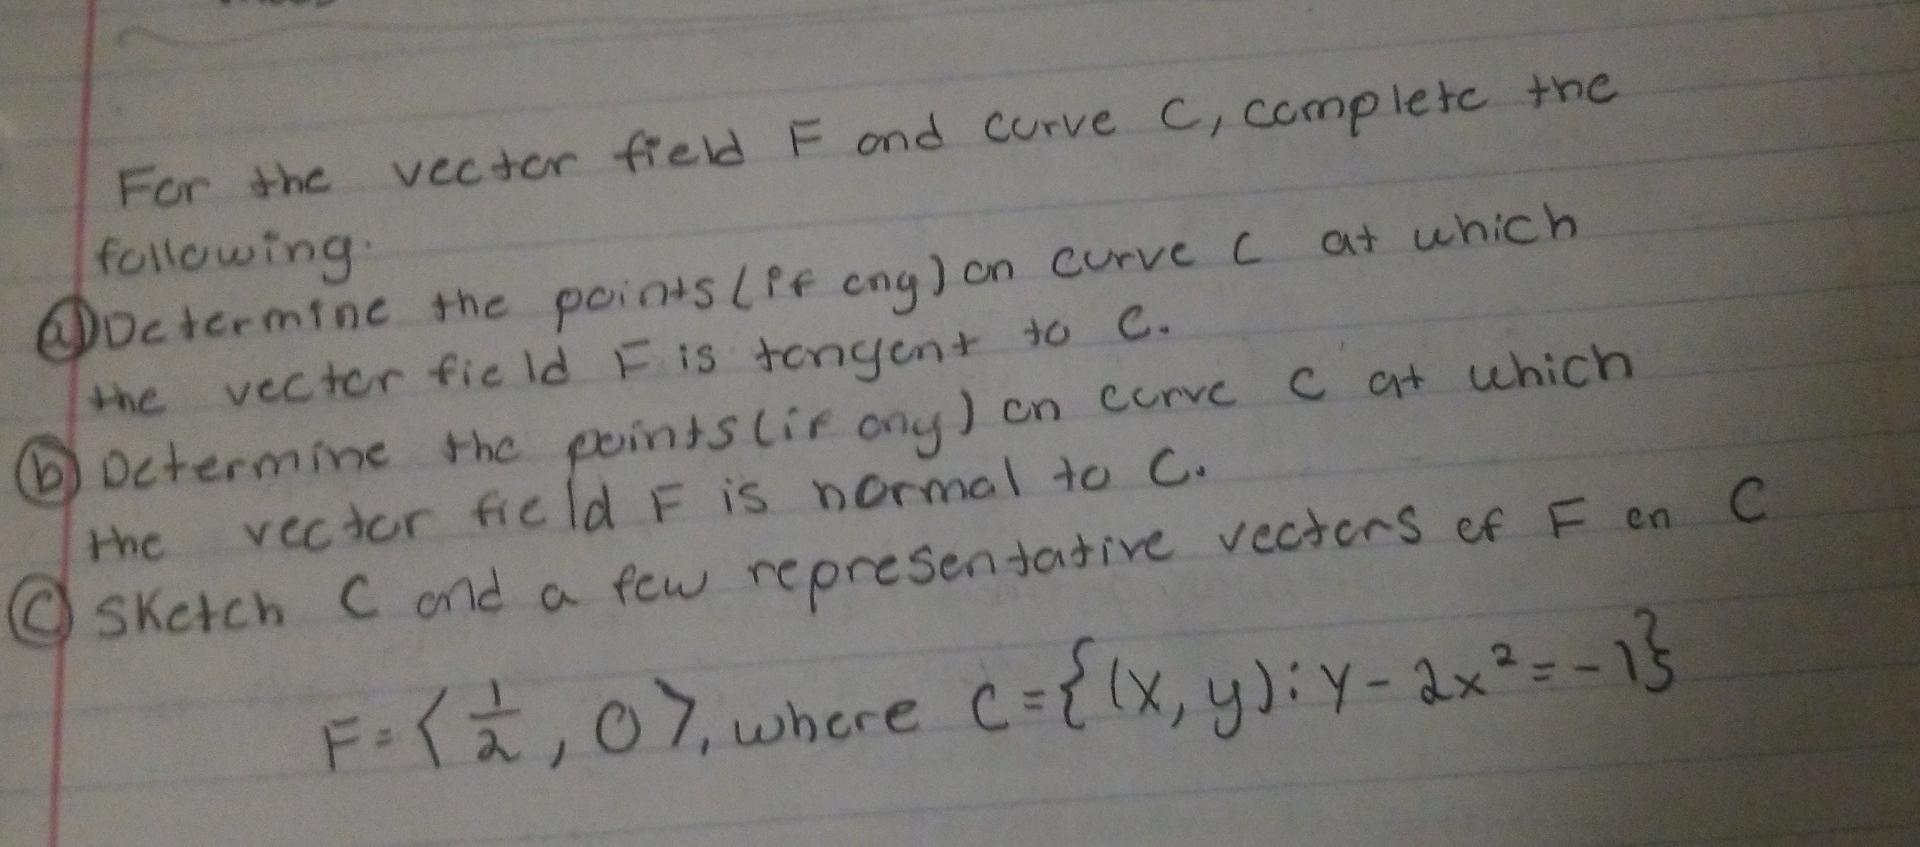 For the vector field F and curve C, complete the
following.
(a) Determine the points (if any) on curve C at which
the vector field F is tangent to C.
(b) Determine the points (if any) on curve C at which
the vector field F is normal to C.
(c) Sketch C and a few representative vectors of F on C
F = ⟨1/2, 0⟩, where C = {(x, y): y - 2x² = -1}